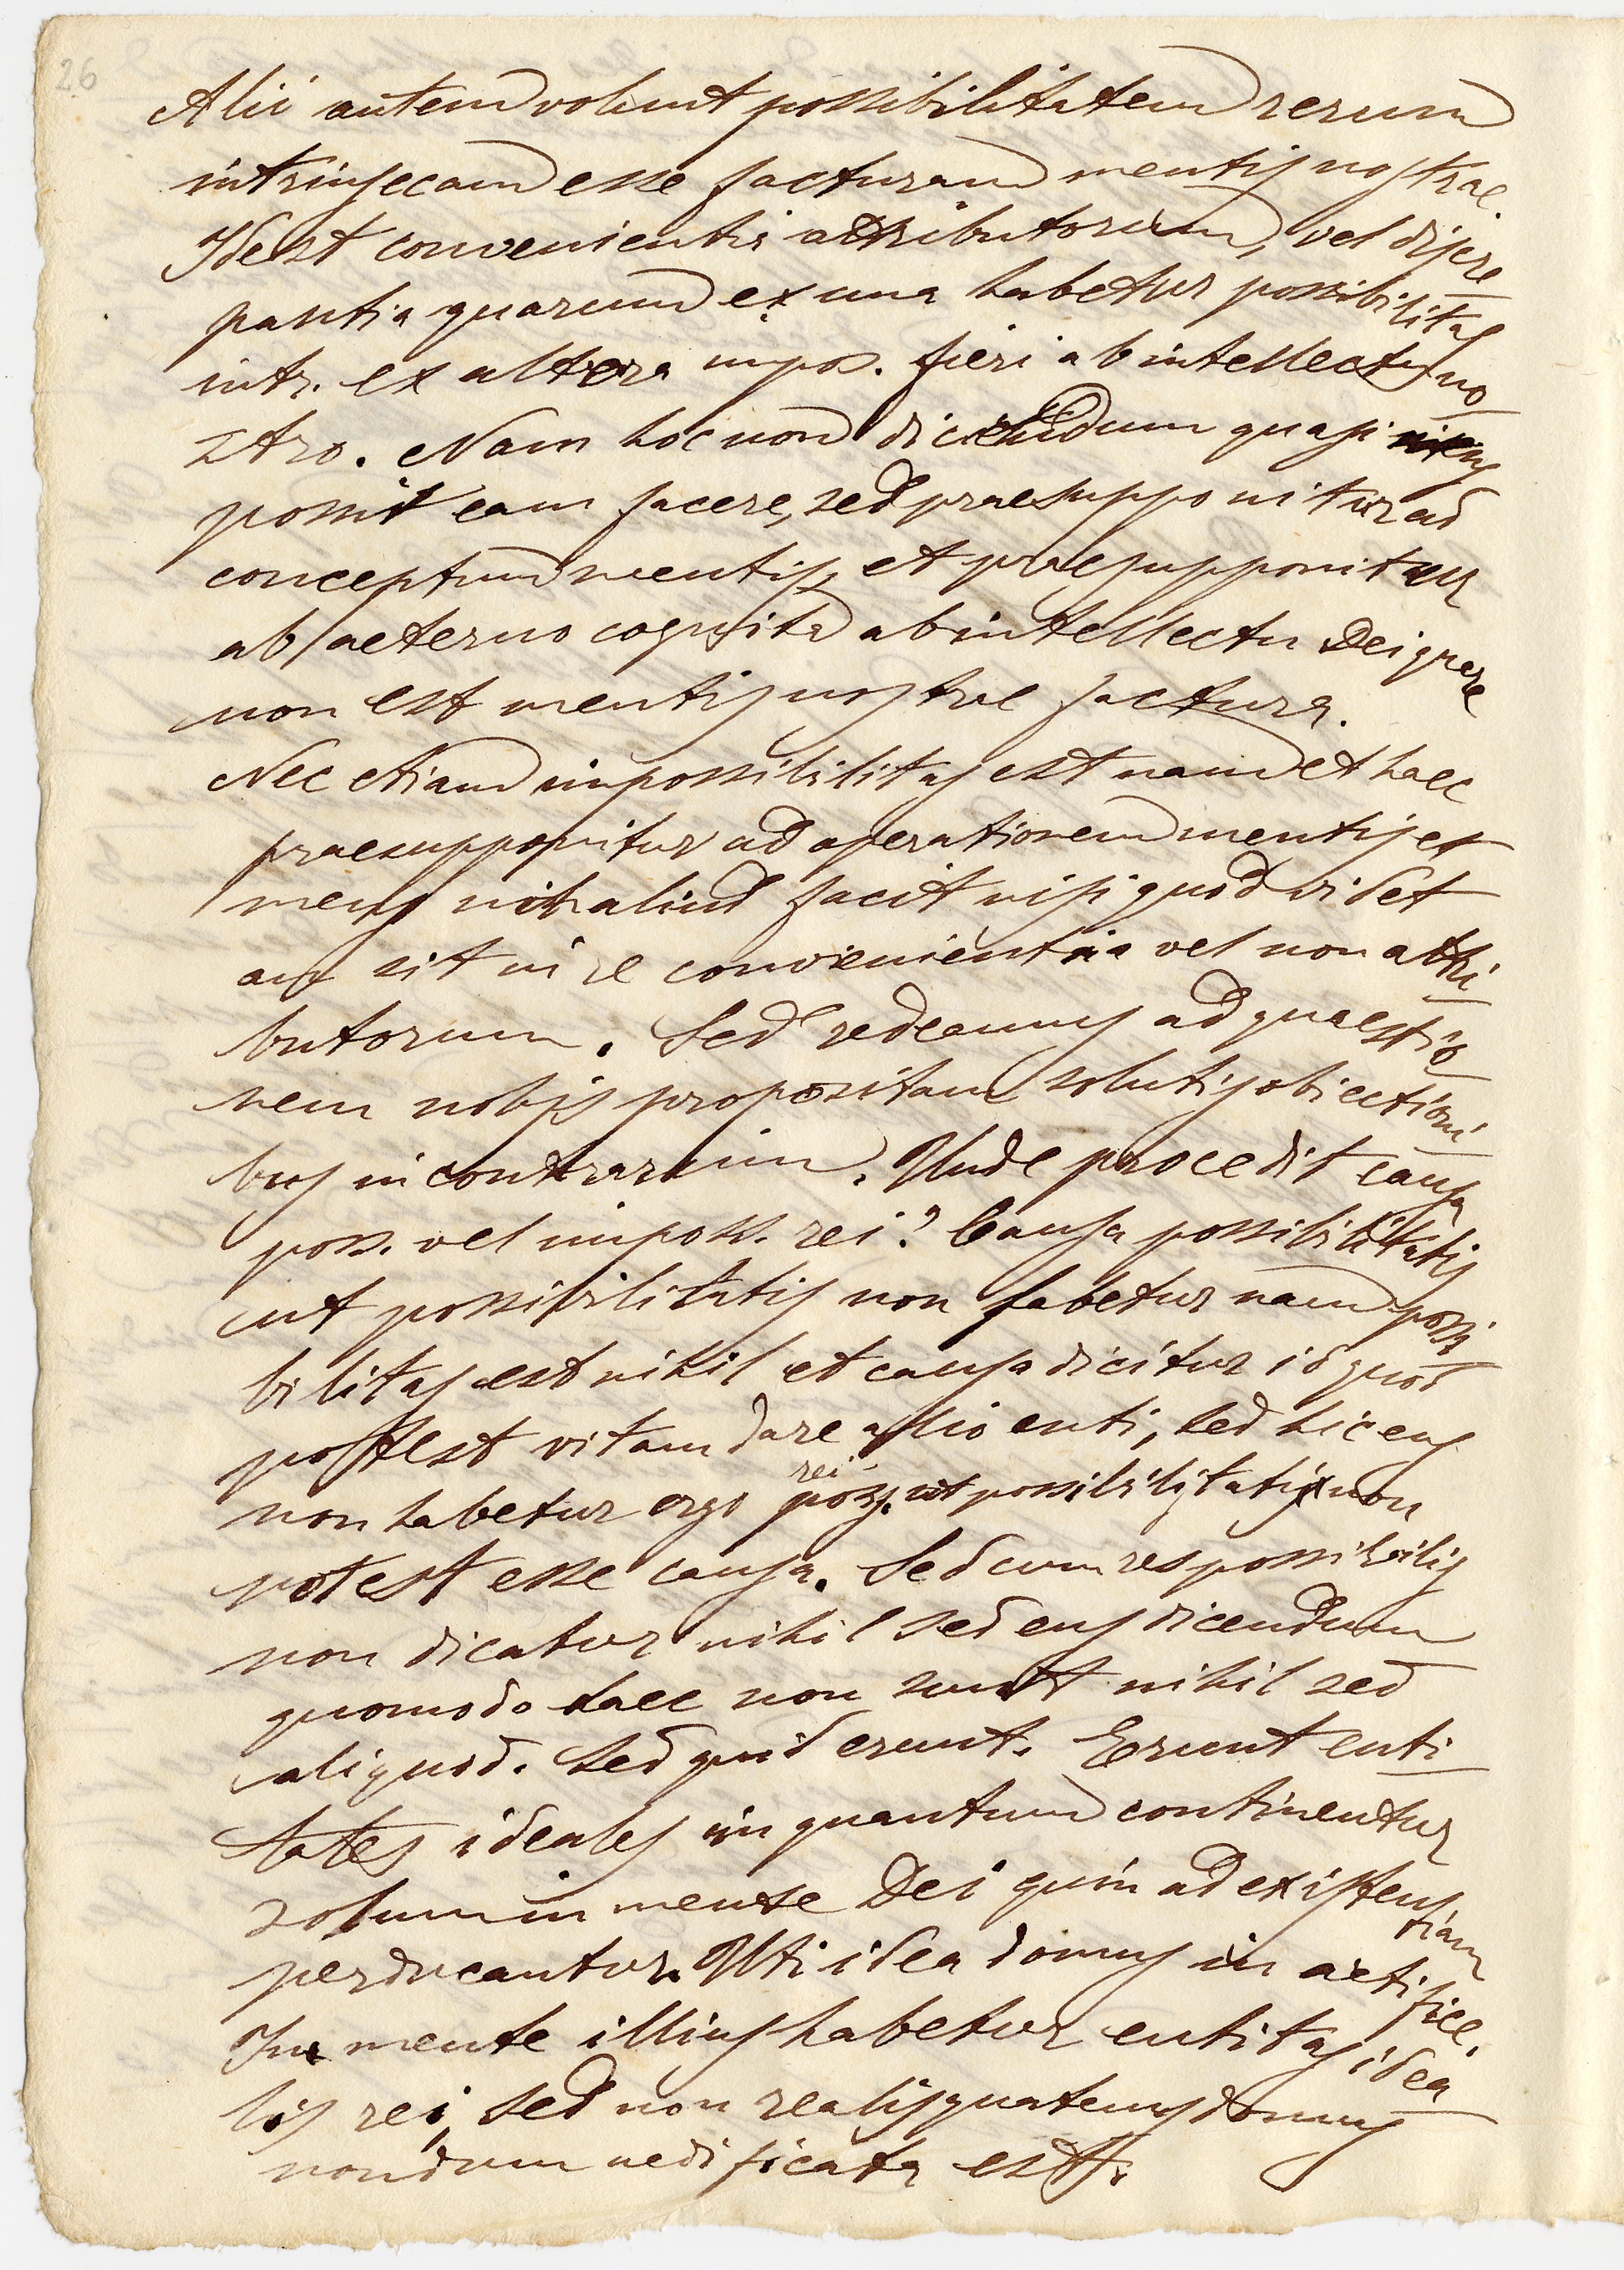 26
Alii autem volunt possibilitatem rerum
intrinsecam esse facturam mentis nostrae.
Id est convenientia attributorum, vel discre
pantia quarum ex una habetur possibilitas
intr. ex altera impos. fieri ab intellectu no
stro. Nam hoc non dicendum quasi
possit eam facere, sed praesupponitur ad
conceptum mentis, et praesupponitur
ab aeterno cognita ab intellectu Dei quare
non est mentis nostrae factura.
Nec etiam impossibilitas est nam et haec
praesupponitur ad operationem mentis et
mens nih aliud facit nisi quod videt
an sit in re convenientia vel non attri
butorum. Sed redeamus ad quaestio
nem nobis propositam solutis obiectioni
bus in contrarium. Unde procedit causa
poss. vel imposs. rei? Causa possibilitatis
ut possibilitatis non habetur nam possi
bilitas est nihil et causa dicitur id quod
potest vitam dare alio enti, sed hic ens
non habetur ergo rei poss. ut possibilitatis non
potest esse causa. Sed cum res possibilis
non dicatur nihil sed ens dicendum
quomodo haec non sunt nihil sed
aliquod. Sed quid erunt. Erunt enti
tates ideales in quantum continentur
solum in mente Dei quin ad existentiam
perducantur. Uti idea domus in artifice.
In mente illius habetur entitas idea
lis rei, sed non realis quatenus domus
nondum aedificata est.